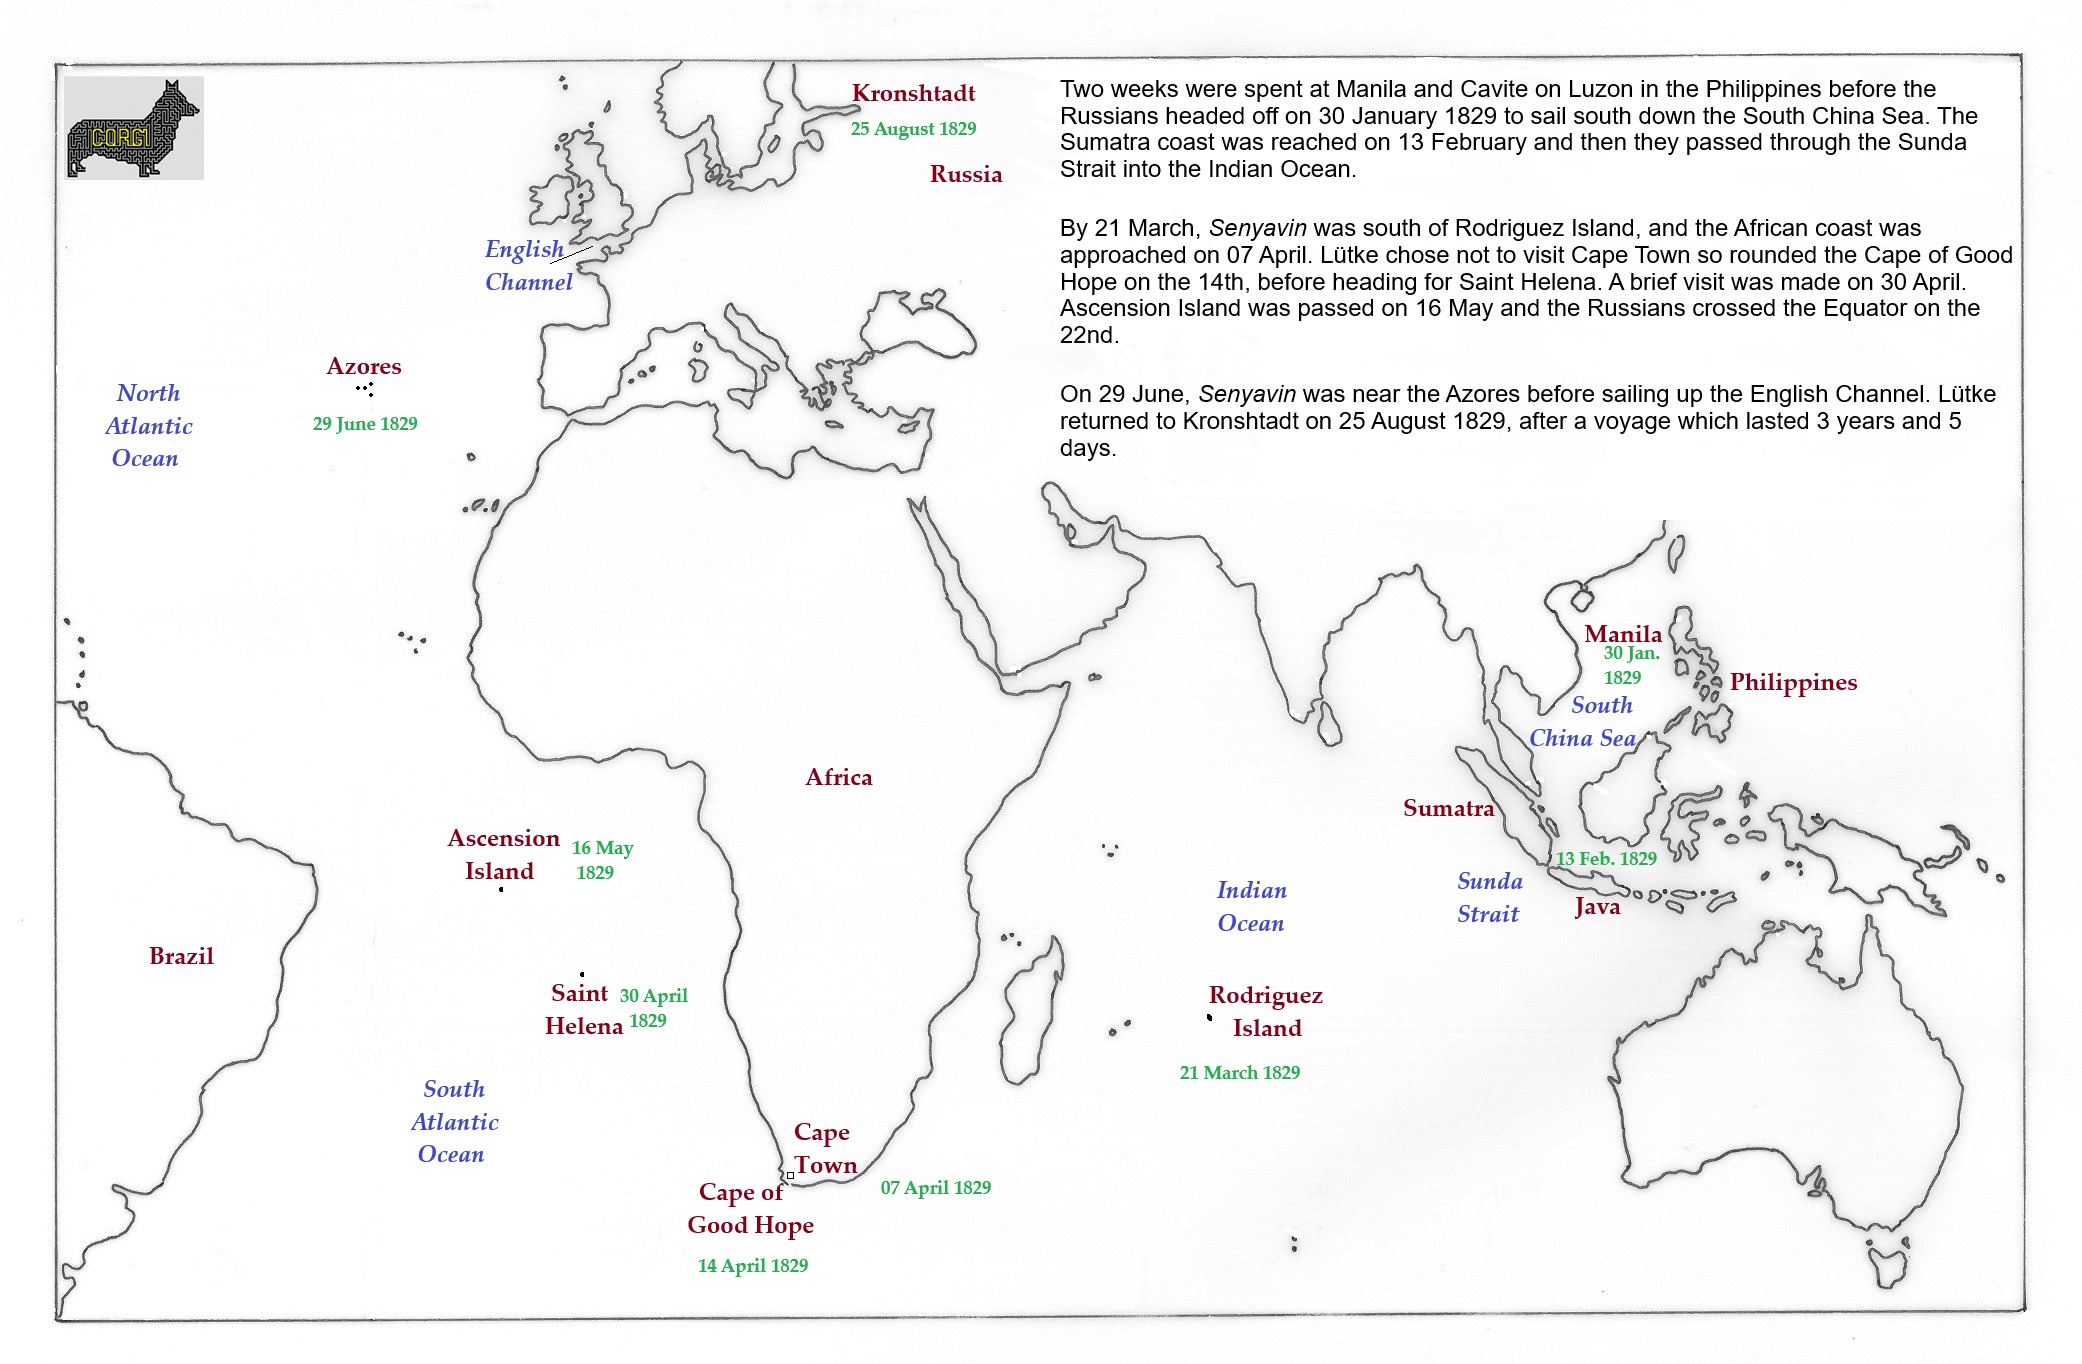 CORGI
Kronshtadt
25 August 1829
Russia
Two weeks were spent at Manila and Cavite on Luzon in the Philippines before the
Russians headed off on 30 January 1829 to sail south down the South China Sea. The
Sumatra coast was reached on 13 February and then they passed through the Sunda
Strait into the Indian Ocean.
By 21 March, Senyavin was south of Rodriguez Island, and the African coast was
approached on 07 April. Lütke chose not to visit Cape Town so rounded the Cape of Good
Hope on the 14th, before heading for Saint Helena. A brief visit was made on 30 April.
Ascension Island was passed on 16 May and the Russians crossed the Equator on the
22nd.
On 29 June, Senyavin was near the Azores before sailing up the English Channel. Lütke
returned to Kronshtadt on 25 August 1829, after a voyage which lasted 3 years and 5
days.
English
Channel
Azores
29 June 1829
North
Atlantic
Ocean
Manila
30 Jan.
1829
Philippines
South
China Sea
Africa
Sumatra
Ascension
Island
16 May
1829
13 Feb. 1829
Sunda
Strait
Java
Indian
Ocean
Brazil
Saint
Helena
30 April
1829
Rodriguez
Island
21 March 1829
South
Atlantic
Ocean
Cape
Town
07 April 1829
Cape of
Good Hope
14 April 1829